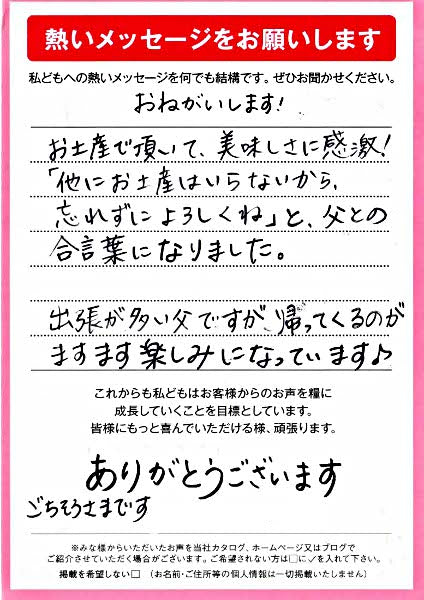 熱いメッセージをお願いします
私どもへの熱いメッセージを何でも結構です。ぜひお聞かせください。
おねがいします!
お土産で頂いて、美味しさに感激!
「他にお土産はいらないから、
忘れずによろしくね」と、父との
合言葉になりました。
出張が多い父ですが、帰ってくるのが
ますます楽しみになっています♪
これからも私どもはお客様からのお声を糧に
成長していくことを目標としています。
皆様にもっと喜んでいただける様、頑張ります。
ありがとうございます
ごちそうさまです
※みな様からいただいたお声を当社カタログ、ホームページ又はブログで
ご紹介させていただく場合がございます。ご希望されない方は□に✓を入れて下さい。
掲載を希望しない□ (お名前・ご住所等の個人情報は一切掲載いたしません)